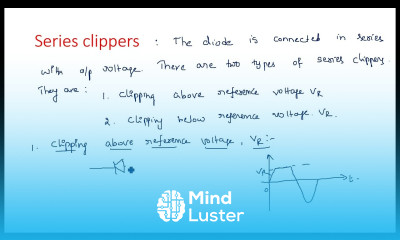 Series clippers : The diode is connected in series
with o/p voltage. There are two types of series clippers.
They are : 1. clipping above reference voltage VR
2. clipping below reference voltage VR.
1. clipping above reference voltage, VR :-
VR
0
t
Mind
Luster